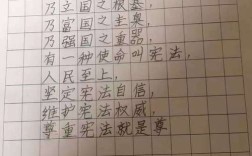 乃立国之根基，
乃富国之圭臬，
乃强国之重器，
有一种使命叫宪法，
人民至上，
坚定宪法自信，
维护宪法权威，
尊重宪法就是尊